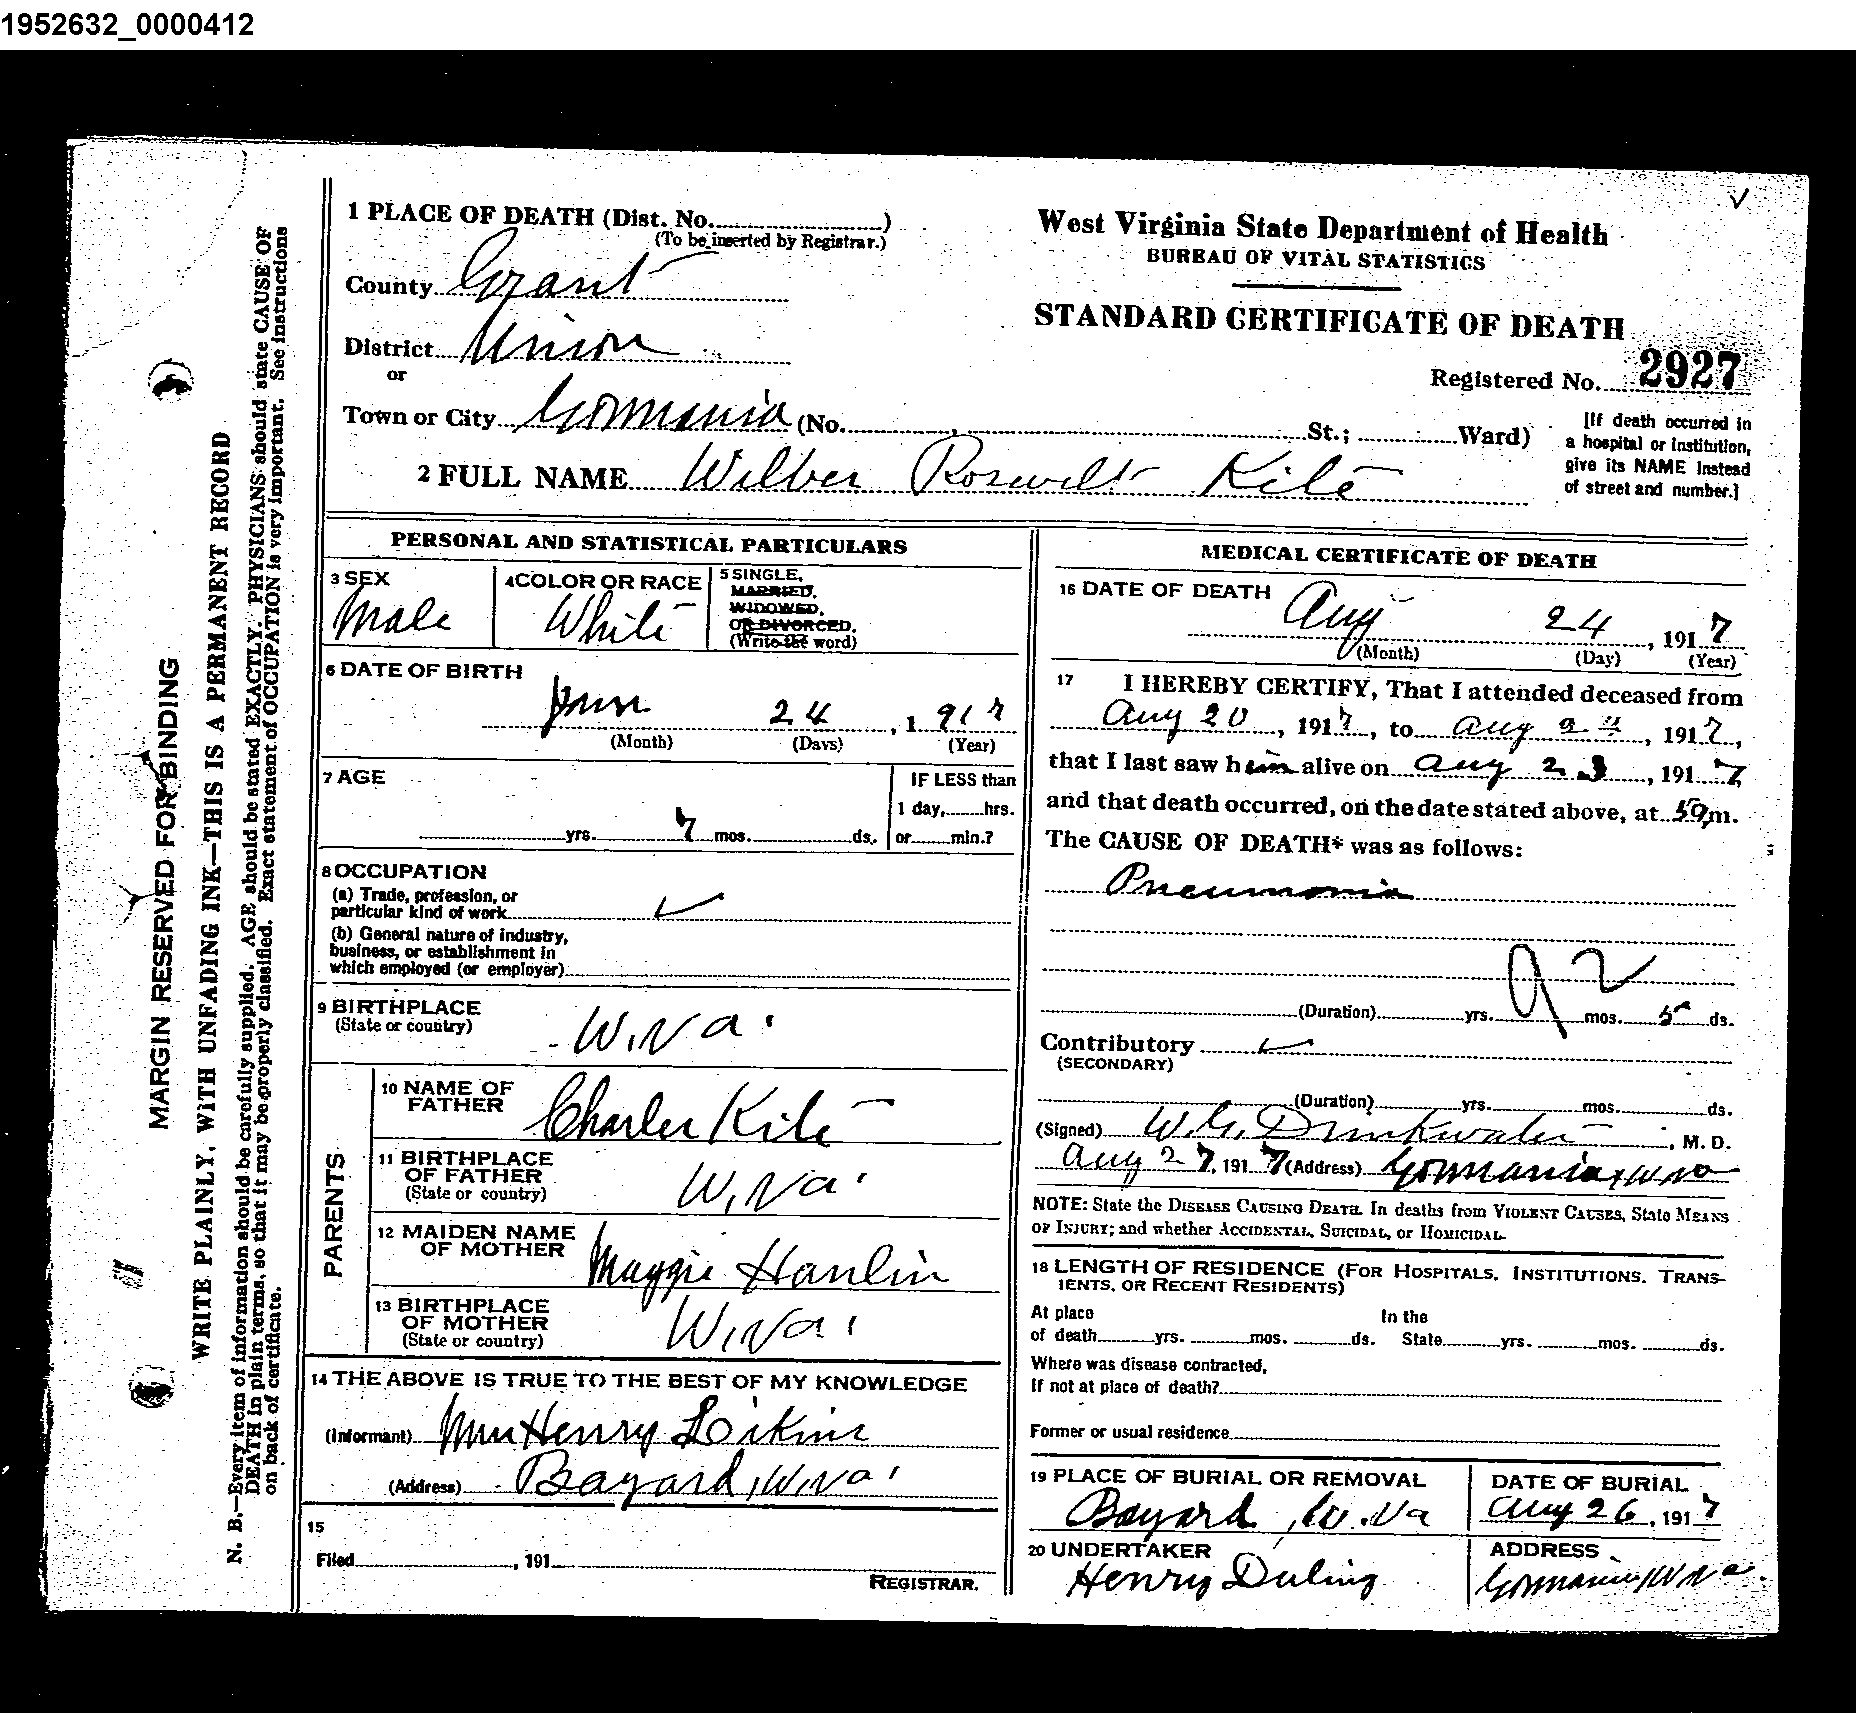 1952632_0000412
1 PLACE OF DEATH (Dist. No.)
(To be inserted by Registrar.)
County Grant
District Union
or
Town or City Gormania (No. St.; Ward)
2 FULL NAME Wilber Rosevelt Kile
West Virginia State Department of Health
BUREAU OF VITAL STATISTICS
STANDARD CERTIFICATE OF DEATH
Registered No. 2927
[If death occurred in
a hospital or institution,
give its NAME instead
of street and number.]
PERSONAL AND STATISTICAL PARTICULARS
3 SEX
Male
4 COLOR OR RACE
White
5 SINGLE,
MARRIED,
WIDOWED,
OR DIVORCED.
(Write the word)
6 DATE OF BIRTH
24, 1917
(Month) (Days) (Year)
7 AGE
yrs. 7 mos. ds.
IF LESS than
1 day, hrs.
or min.?
8 OCCUPATION
(a) Trade, profession, or
particular kind of work
(b) General nature of industry,
business, or establishment in
which employed (or employer)
9 BIRTHPLACE
(State or country)
W. Va.
PARENTS
10 NAME OF
FATHER
Charles Kile
11 BIRTHPLACE
OF FATHER
(State or country)
W. Va.
12 MAIDEN NAME
OF MOTHER
Maggie Hanlin
13 BIRTHPLACE
OF MOTHER
(State or country)
W. Va.
14 THE ABOVE IS TRUE TO THE BEST OF MY KNOWLEDGE
(Informant) Henry
(Address) Bayard, W. Va.
15
Filed , 191
REGISTRAR.
MEDICAL CERTIFICATE OF DEATH
16 DATE OF DEATH
Aug 24, 1917
(Month) (Day) (Year)
17 I HEREBY CERTIFY, That I attended deceased from
Aug 20, 1917, to Aug , 1917,
that I last saw him alive on Aug 23, 1917,
and that death occurred, on the date stated above, at m.
The CAUSE OF DEATH* was as follows:
Pneumonia
92
(Duration) yrs. mos. 5 ds.
Contributory
(SECONDARY)
(Duration) yrs. mos. ds.
(Signed) W. G. Drinkwater, M. D.
Aug 27, 1917 (Address) Gormania, W Va
NOTE: State the DISEASE CAUSING DEATH. In deaths from VIOLENT CAUSES, State MEANS
OF INJURY; and whether ACCIDENTAL, SUICIDAL, or HOMICIDAL.
18 LENGTH OF RESIDENCE (FOR HOSPITALS, INSTITUTIONS, TRANS-
IENTS, OR RECENT RESIDENTS)
At place In the
of death yrs. mos. ds. State yrs. mos. ds.
Where was disease contracted,
If not at place of death?
Former or usual residence
19 PLACE OF BURIAL OR REMOVAL
Bayard, W. Va
DATE OF BURIAL
Aug 26, 1917
20 UNDERTAKER
Henry Duling
ADDRESS
Gormania, W Va.
MARGIN RESERVED FOR BINDING
WRITE PLAINLY, WITH UNFADING INK—THIS IS A PERMANENT RECORD
N. B.—Every item of information should be carefully supplied. AGE should be stated EXACTLY. PHYSICIANS should state CAUSE OF
DEATH in plain terms, so that it may be properly classified. Exact statement of OCCUPATION is very important. See instructions
on back of certificate.